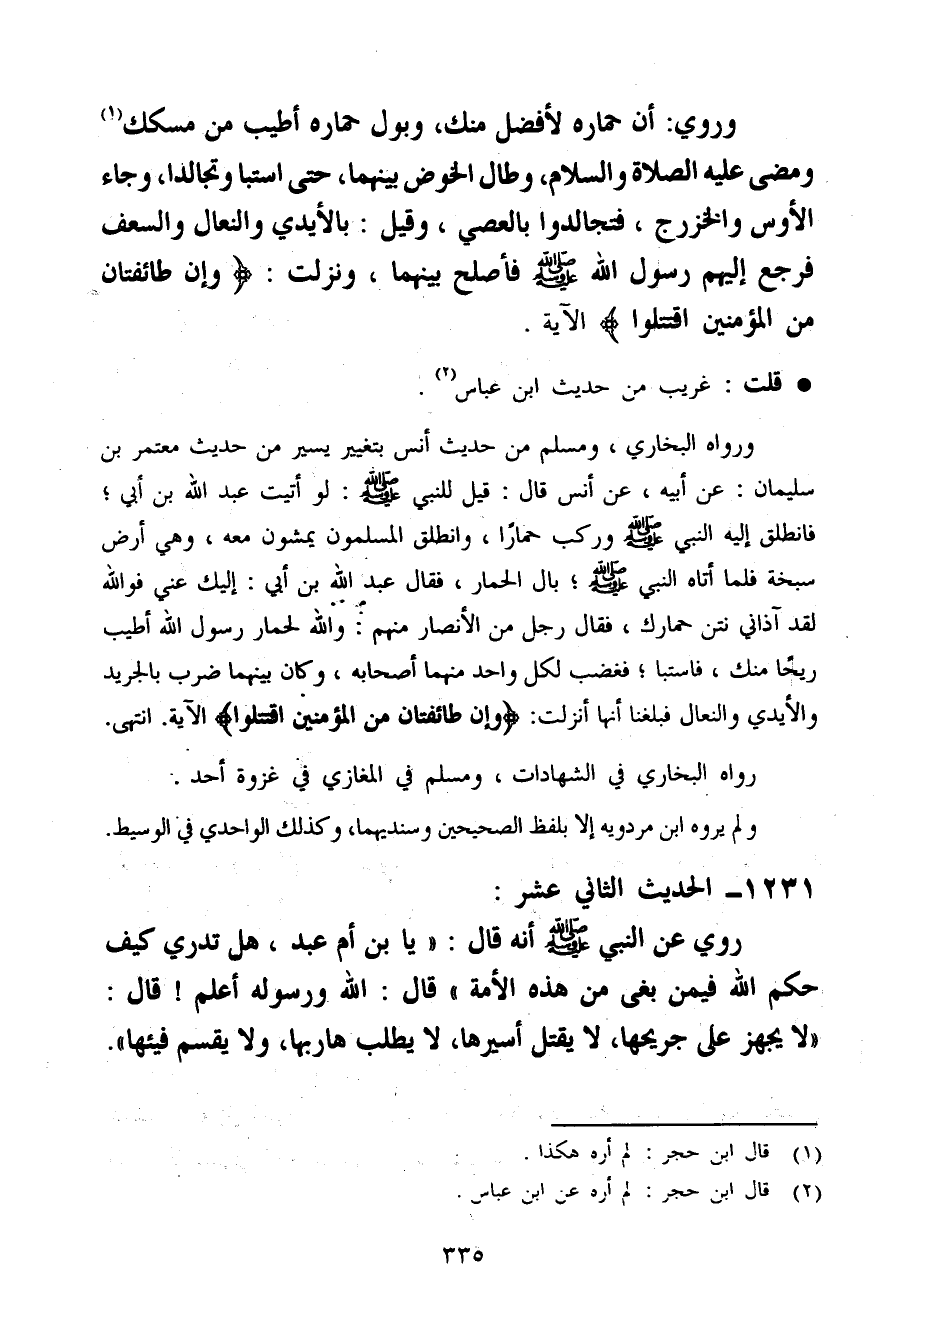 وروي: أن حماره لأفضل منك، وبول حماره أطيب من مسكك(١)
ومضى عليه الصلاة والسلام، وطال الخوض بينهما، حتى استبا وتجالدا، وجاء
الأوس والخزرج ، فتجالدوا بالعصي ، وقيل : بالأيدي والنعال والسعف
فرجع إليهم رسول الله ﷺ فأصلح بينهما ، ونزلت : ﴿ وإن طائفتان
من المؤمنين اقتتلوا ﴾ الآية .
● قلت : غريب من حديث ابن عباس(٢) .
ورواه البخاري ، ومسلم من حديث أنس بتغيير يسير من حديث معتمر بن
سليمان : عن أبيه ، عن أنس قال : قيل للنبي ﷺ : لو أتيت عبد الله بن أبي ؛
فانطلق إليه النبي ﷺ وركب حمارًا ، وانطلق المسلمون يمشون معه ، وهي أرض
سبخة فلما أتاه النبي ﷺ ؛ بال الحمار ، فقال عبد الله بن أبي : إليك عني فوالله
لقد آذاني نتن حمارك ، فقال رجل من الأنصار منهم : والله لحمار رسول الله أطيب
ريحًا منك ، فاستبا ؛ فغضب لكل واحد منهما أصحابه ، وكان بينهما ضرب بالجريد
والأيدي والنعال فبلغنا أنها أنزلت: ﴿وإن طائفتان من المؤمنين اقتتلوا﴾ الآية. انتهى.
رواه البخاري في الشهادات ، ومسلم في المغازي في غزوة أحد .
ولم يروه ابن مردويه إلا بلفظ الصحيحين وسنديهما، وكذلك الواحدي في الوسيط.
١٢٣١ـ الحديث الثاني عشر :
روي عن النبي ﷺ أنه قال : « يا بن أم عبد ، هل تدري كيف
حكم الله فيمن بغى من هذه الأمة » قال : الله ورسوله أعلم ! قال :
«لا يجهز على جريحها، لا يقتل أسيرها، لا يطلب هاربها، ولا يقسم فيئها».
(١) قال ابن حجر : لم أره هكذا .
(٢) قال ابن حجر : لم أره عن ابن عباس .
٣٣٥